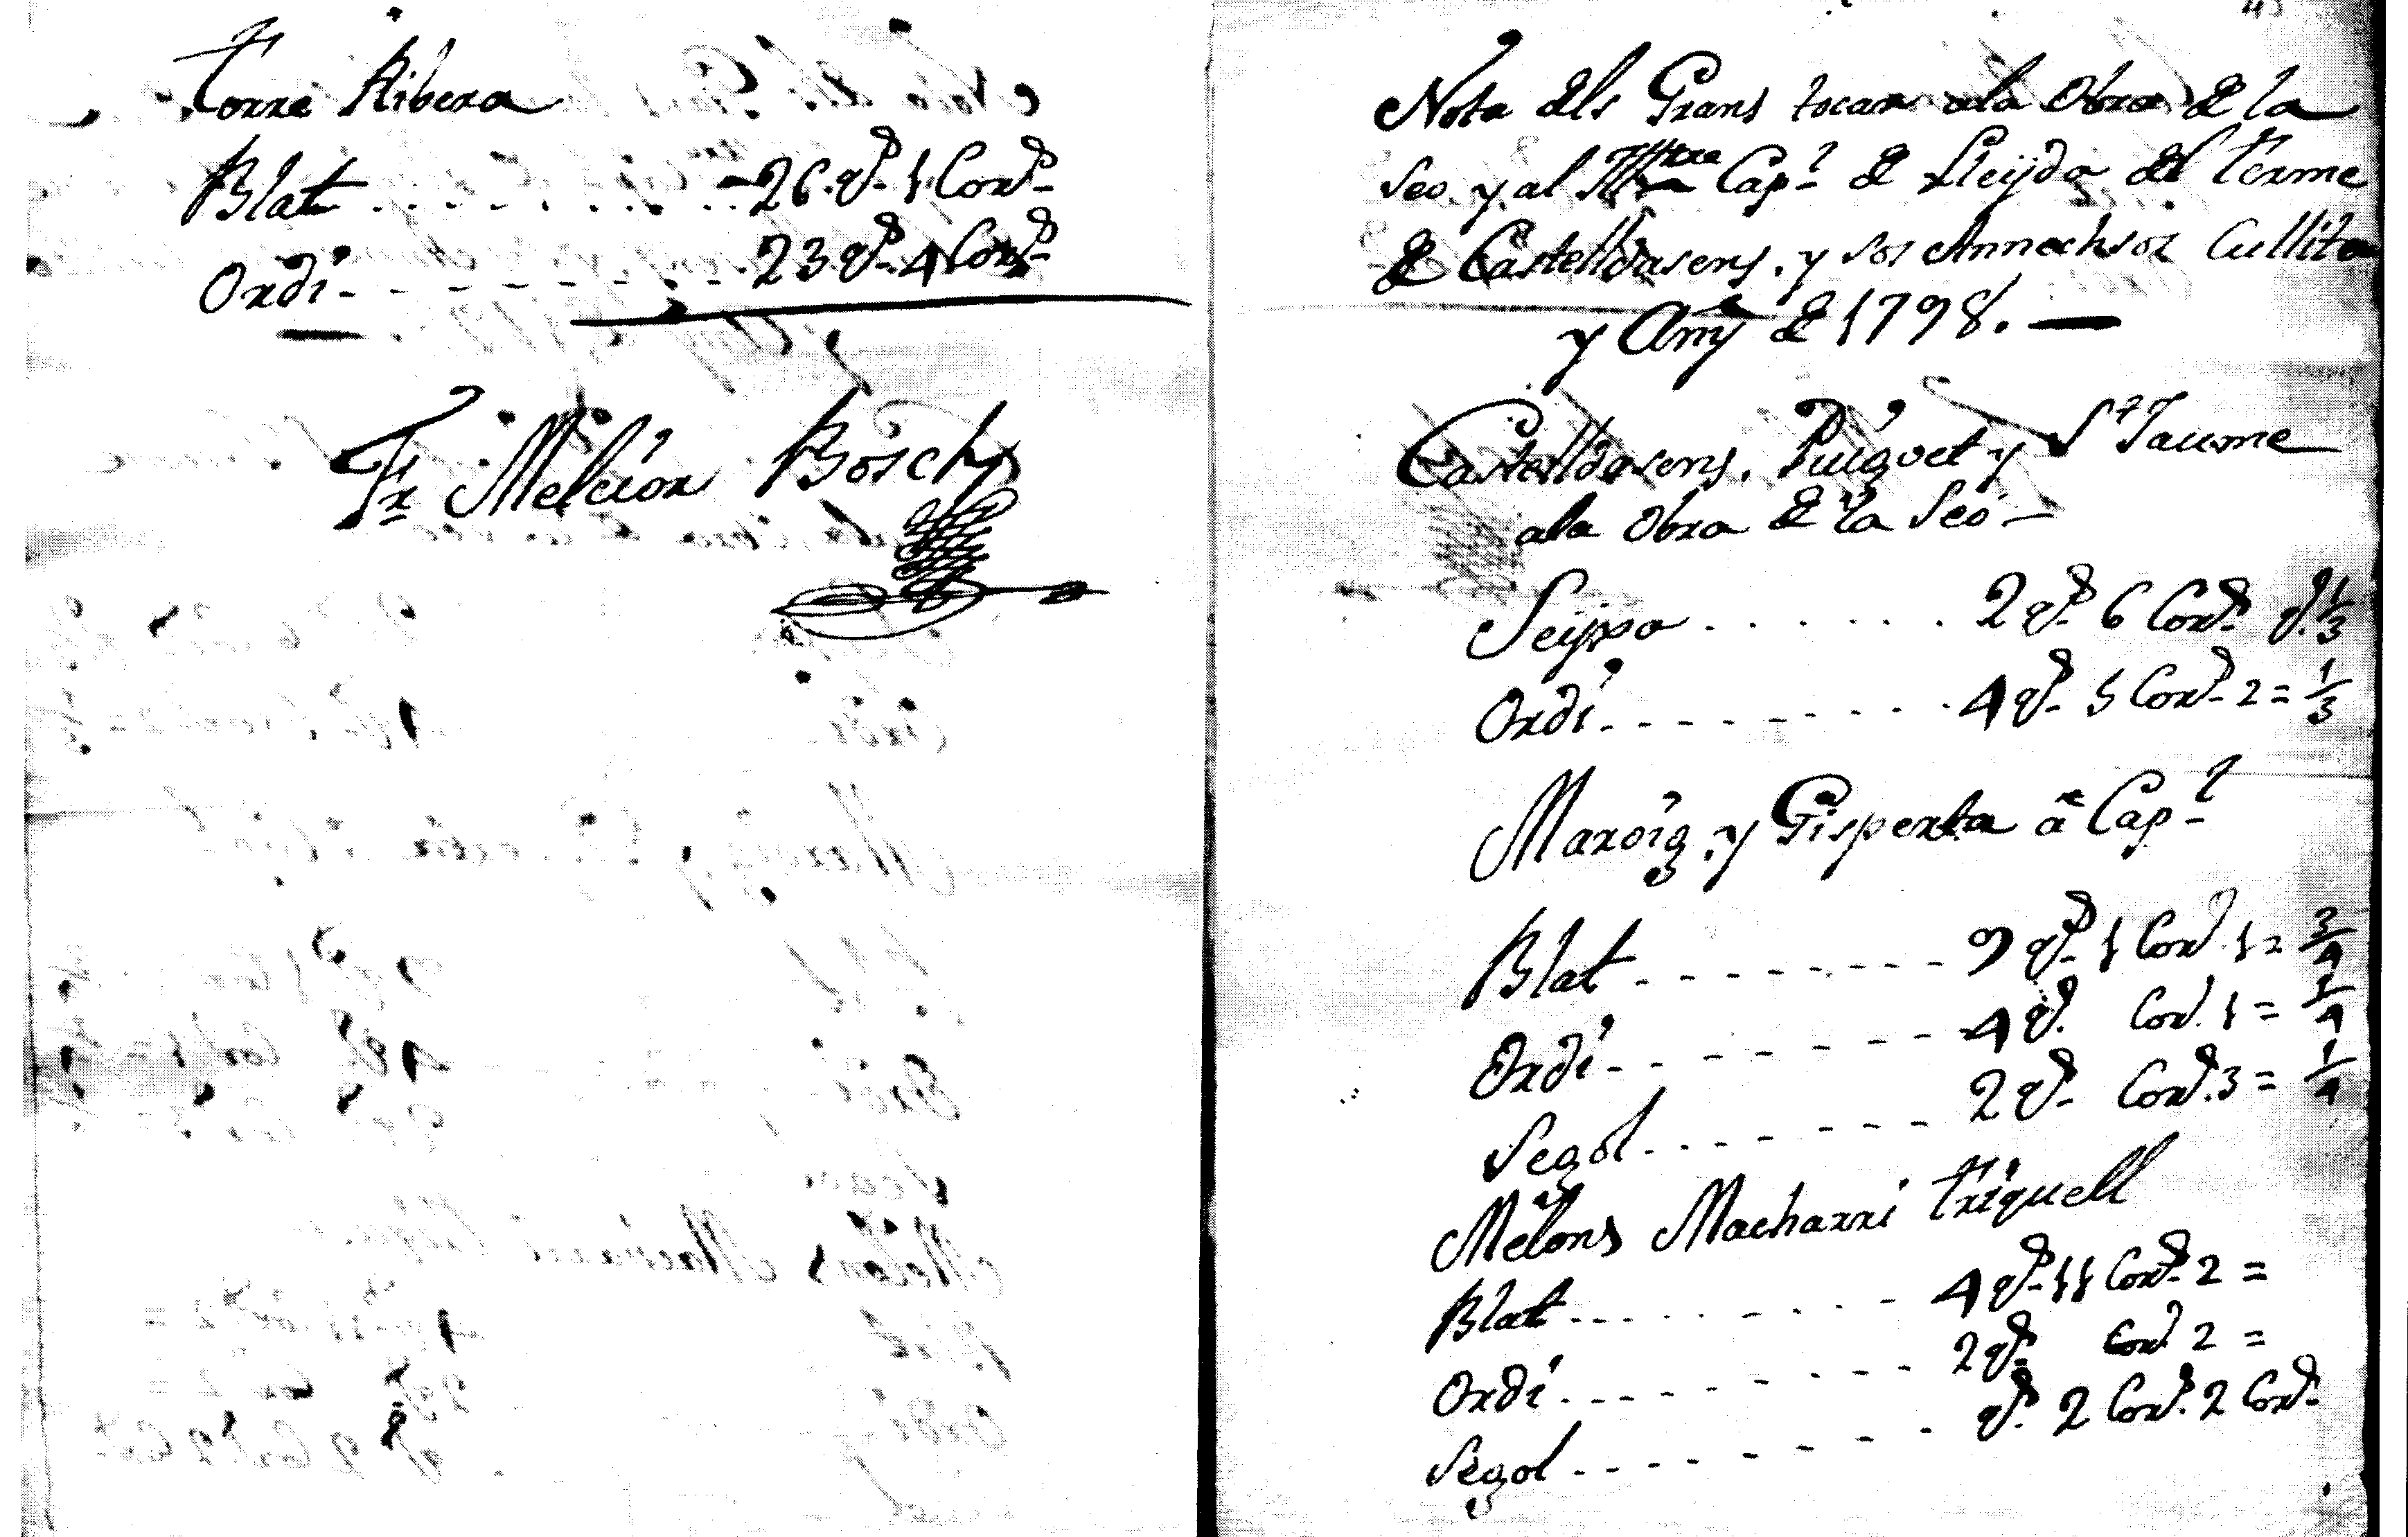 Torre Ribera
Blat . . . . . . . 26. qs. 1 Cors.
Ordi - - - - - - - 23 qs. 4 Cors.
Fr. Melcior Bosch
Nota dels Grans tocan ala Obra de la
Seo. y al Illtre Capl. de Lleyda del terme
de Castelldasens. y sos Annechsos Cullita
y Any de 1798.
Castelldasens. Puigvet y St Jaume
ala Obra de la Seo
Seijxa . . . . . . 2 qs. 6 Cors. 1/3
Ordi - - - - - - - - 4 qs. 5 Cors. 2 = 1/3
Maroig. y Gisperta â Capl.
Blat - - - - - - - - 9 qs. 1 Cors. 1 = 3/4
Ordi - - - - - - - 4 qs. Cors. 1 = 1/4
Segol - - - - - - - 2 qs. Cors. 3 = 1/4
Melons Macharri triquell
Blat - - - - - - - 4 qs. 11 Cors. 2 =
Ordi - - - - - - - 2 qs. Cors. 2 =
Segol - - - - - - - qs. 2 Cors. 2 Cors.